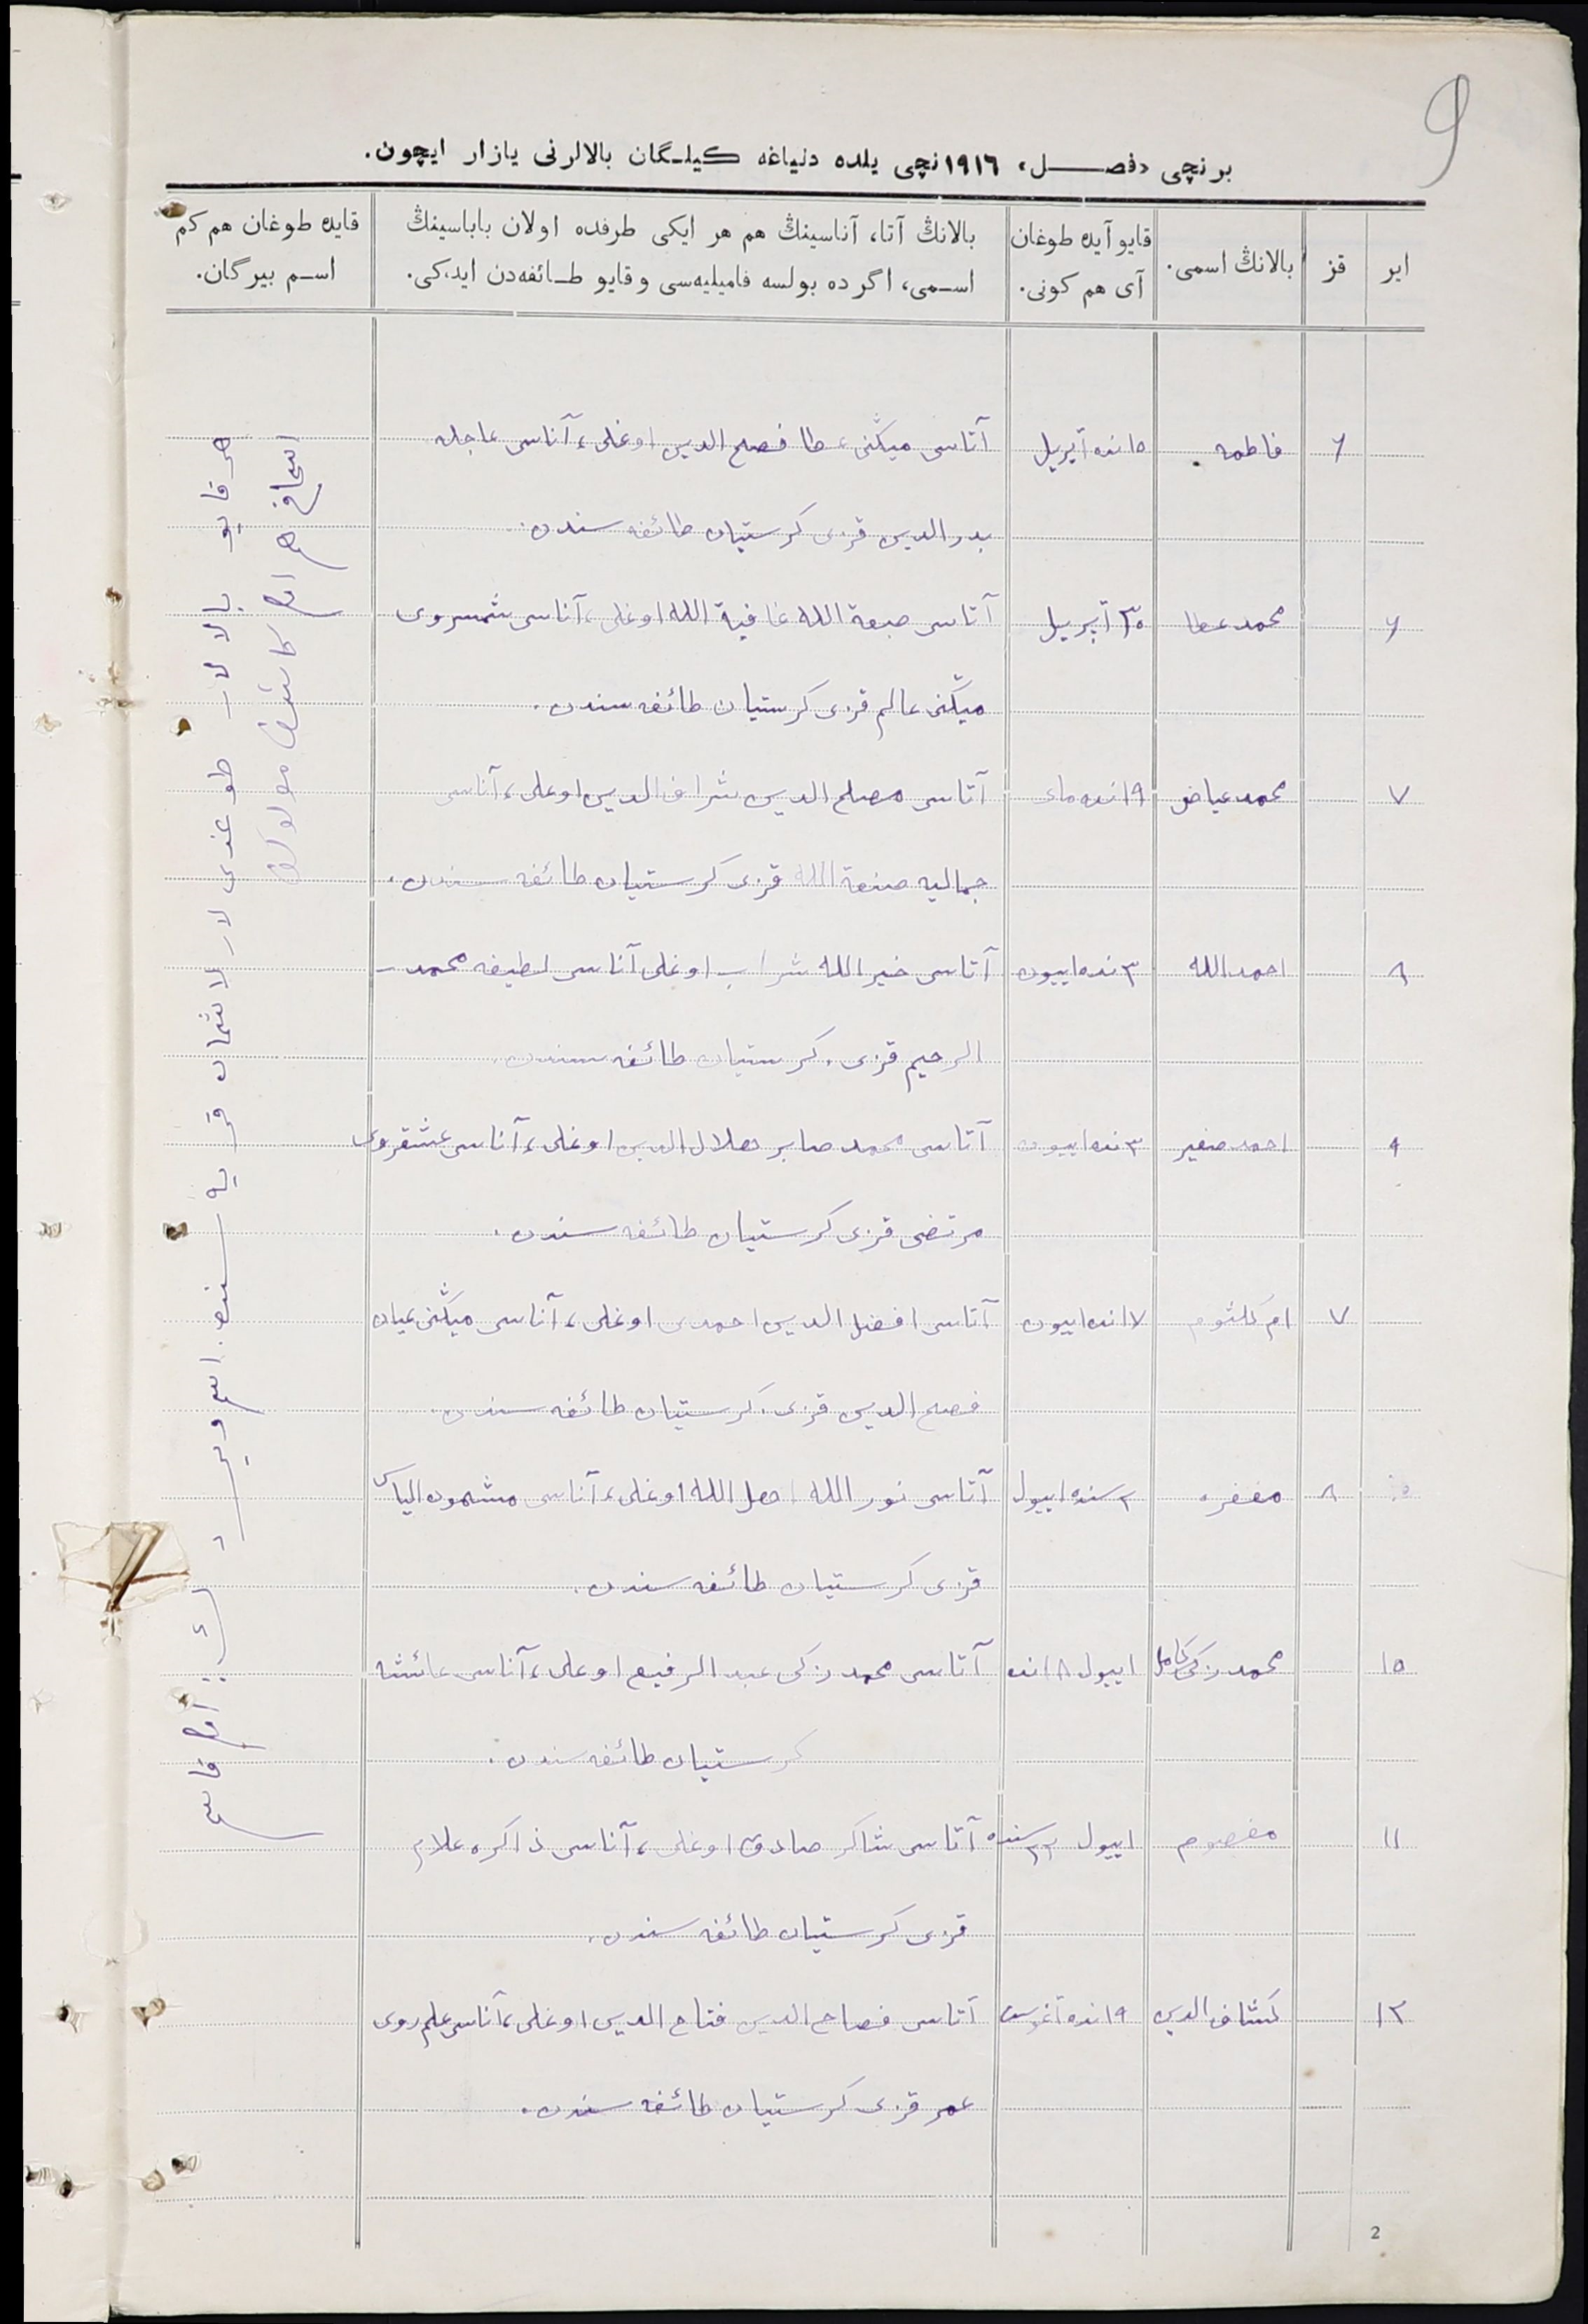 9
برنچی «فصل» ١٩١٦نچی یلده دنیاغه کیلگان بالالرنی یازار ایچون.
ایر
قز
بالانڭ اسمی.
قایو آیده طوغان
آی هم کونی.
بالانڭ آتا، آناسینڭ هم هر ایکی طرفده اولان باباسینڭ
اسمی، اگرده بولسه فامیلیه‌سی و قایو طائفه‌دن ایدکی.
قایده طوغان هم کم
اسم بیرگان.
٦ فاطمه ١٥نده آپریل آتاسی میڭنی عطا فصلح الدین اوغلی، آناسی عاجله
بدرالدین قزی کرستیان طائفه سندن.
٦ محمد عطا ٣٠ آپریل آتاسی صبعة الله عافیة الله اوغلی، آناسی شمسروی
میڭنی عالم قزی کرستیان طائفه سندن.
٧ محمد عیاض ١٩نده مای آتاسی مصلح الدین شراف الدین اوغلی، آناسی
جمالیه صنعة الله قزی کرستیان طائفه سندن.
٨ احمدالله ٣نده اییون آتاسی خیرالله شراب اوغلی آناسی لطیفه محمد
الرحیم قزی. کرستیان طائفه سندن.
٩ احمد صغیر ٣نده اییون آتاسی محمد صابر هلال الدین اوغلی، آناسی عشقروی
مرتضی قزی کرستیان طائفه سندن.
٧ ام کلثوم ١٧نده اییون آتاسی افضل الدین احمدی اوغلی، آناسی میڭنی عیان
فصلح الدین قزی. کرستیان طائفه سندن.
٨ مغفره ٢سنده اییول آتاسی نورالله اهل الله اوغلی، آناسی الیاس
قزی کرستیان طائفه سندن.
١٥ محمد زکی کامل اییول ١٨نده آتاسی محمد زکی عبد الرفیع اوغلی، آناسی عائشه
کرستیان طائفه سندن.
١١ معصوم اییول ٢٢سنده آتاسی شاکر صادق اوغلی، آناسی ذاکره علام
قزی کرستیان طائفه سندن.
١٢ کشاف الدین ١٩نده آغوست آتاسی فصاح الدین فتاح الدین اوغلی، آناسی علم روی
عمر قزی کرستیان طائفه سندن.
هر قایو بالالار طوغدی لار قریه سنده. اسم ویردی امام
2